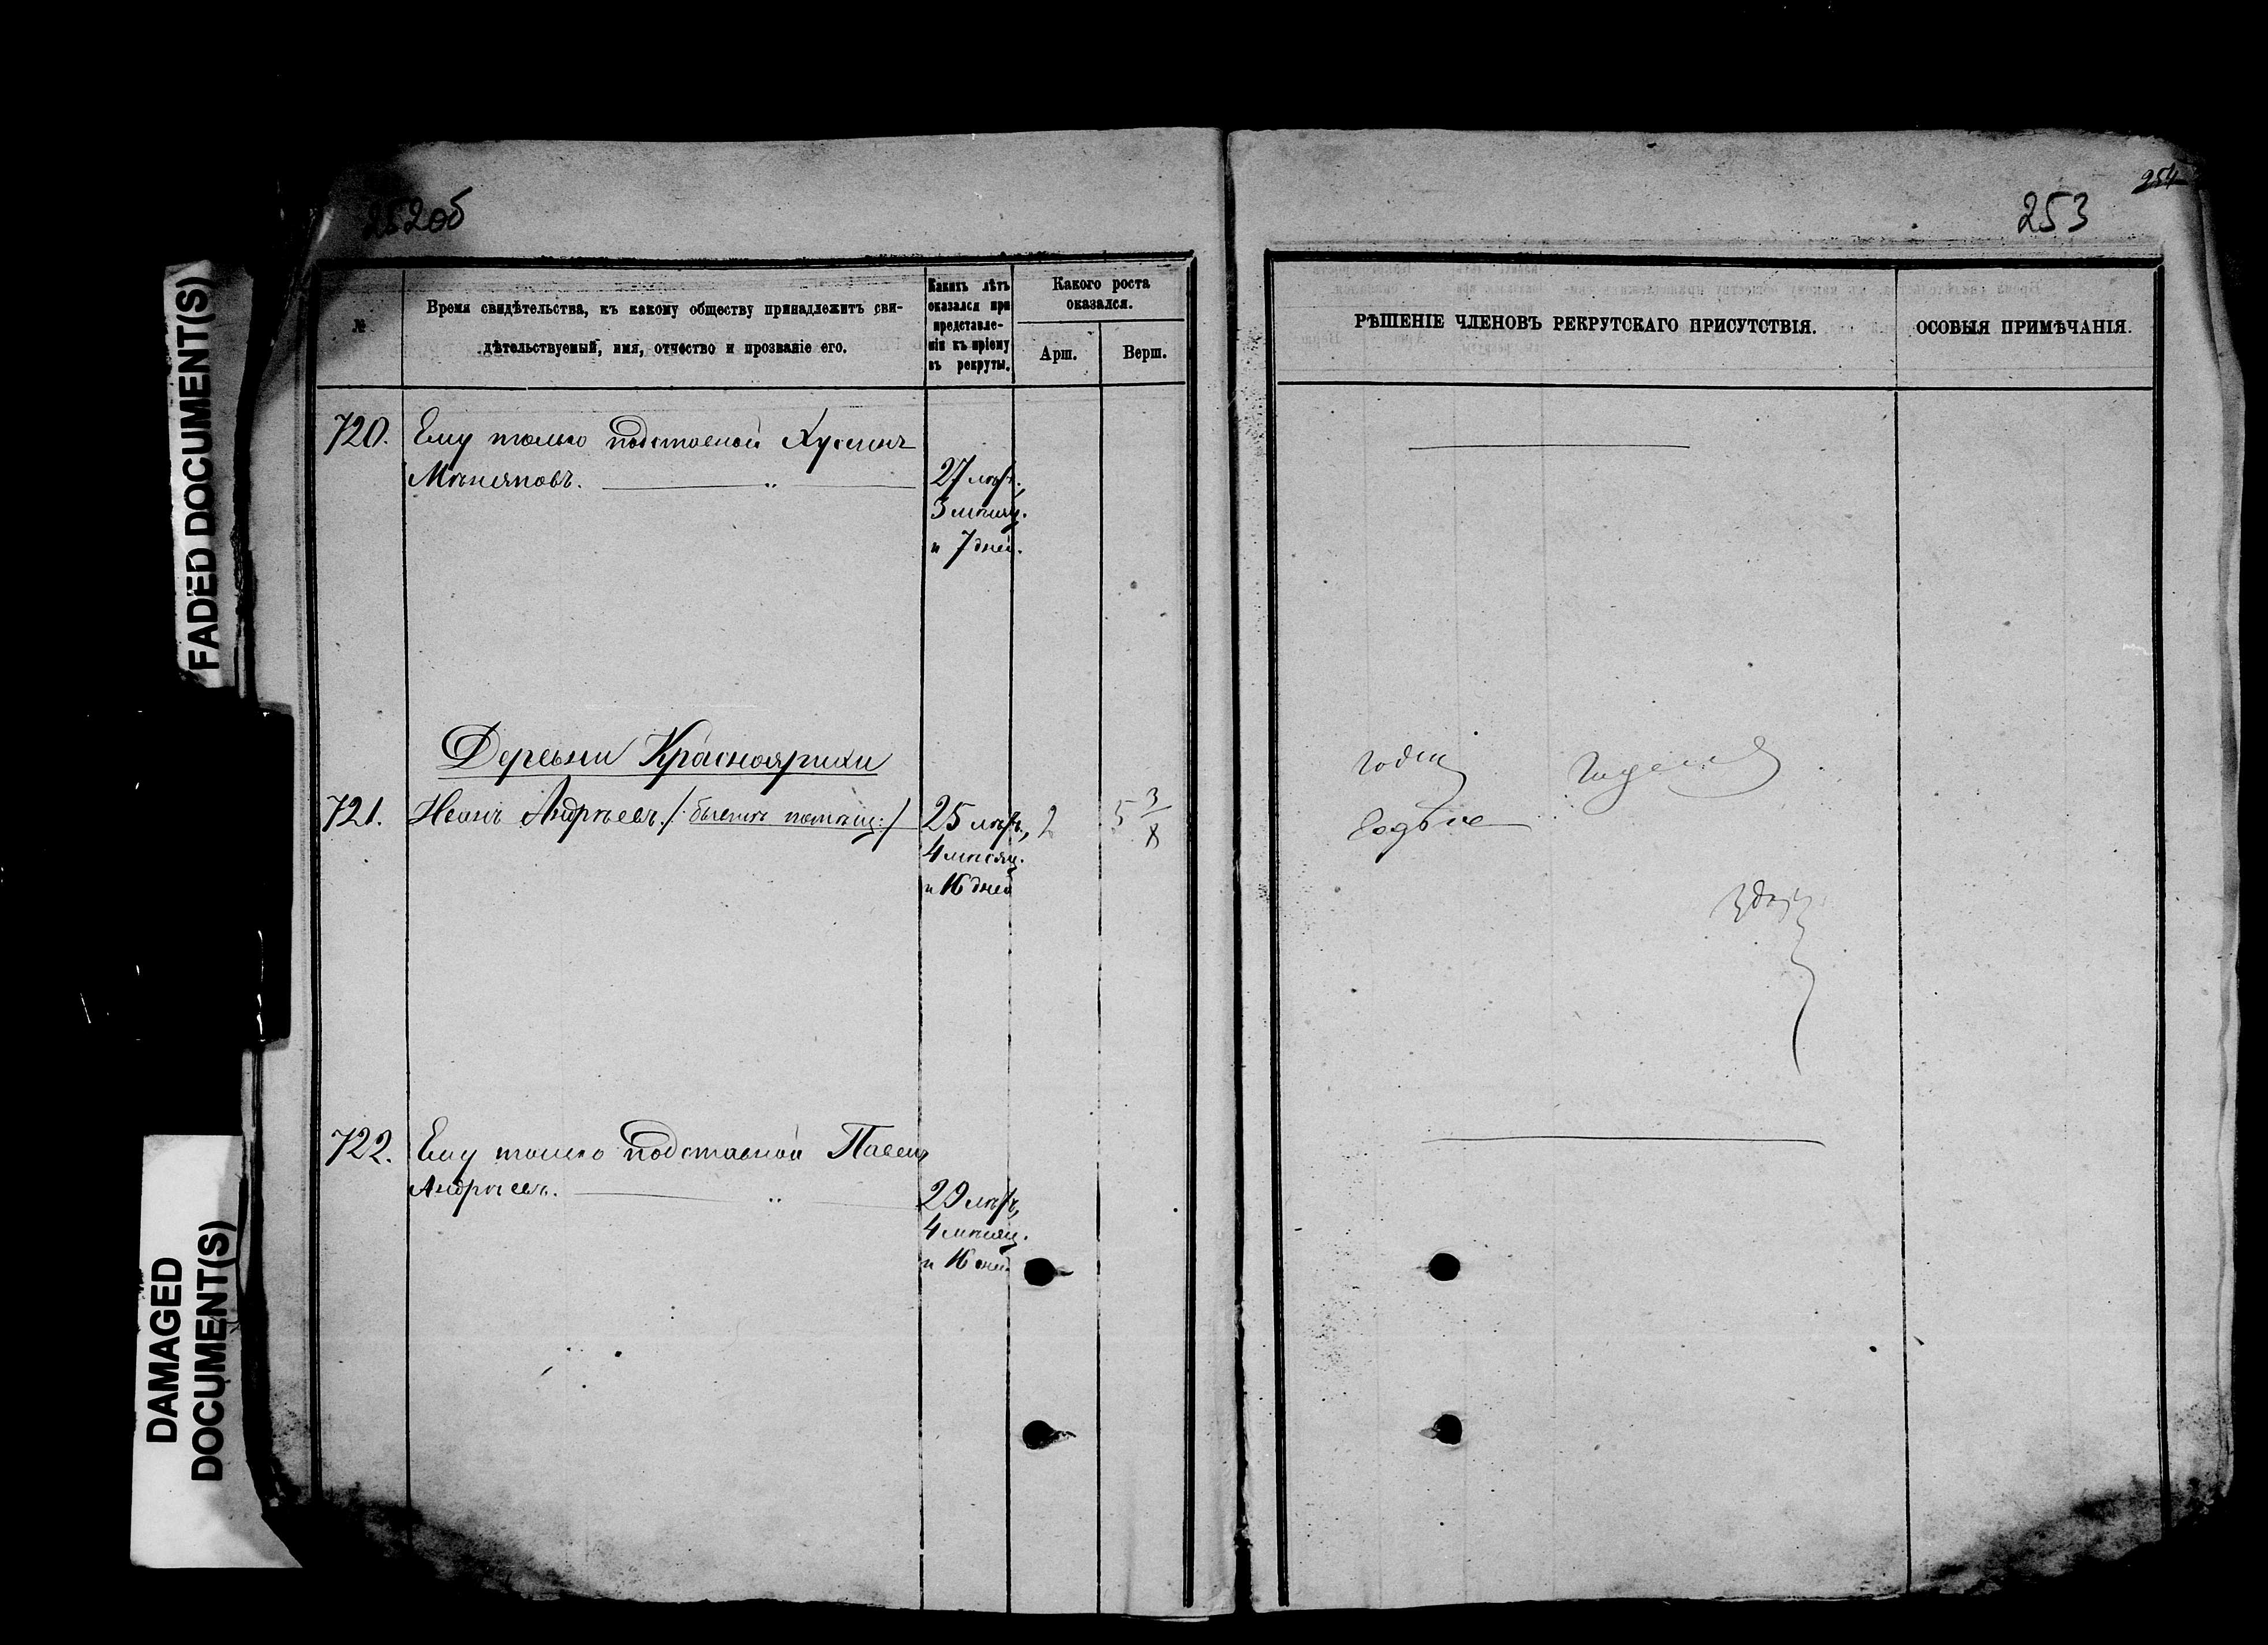 252об
№
Время свидѣтельства, къ какому обществу принадлежитъ сви-
дѣтельствуемый, имя, отчество и прозваніе его.
Какихъ лѣтъ
оказался при
представле-
ніи къ пріему
въ рекруты.
Какого роста
оказался.
Арш.
Верш.
720.
Ему только подставной Хусеинъ
27 лѣтъ,
3 мѣсяц.
и 7 дней.
Деревни Красноярихи
721.
Иванъ Андреевъ /: бывшихъ помѣщ: /
25 лѣтъ,
4 мѣсяц.
и 16 дней
2
5 3/8
722.
Ему только подставной Павелъ
Андреевъ.
29 лѣтъ,
4 мѣсяц.
и 16 дней
254
253
РѢШЕНІЕ ЧЛЕНОВЪ РЕКРУТСКАГО ПРИСУТСТВІЯ.
ОСОБЫЯ ПРИМѢЧАНІЯ.
FADED DOCUMENT(S)
DAMAGED
DOCUMENT(S)